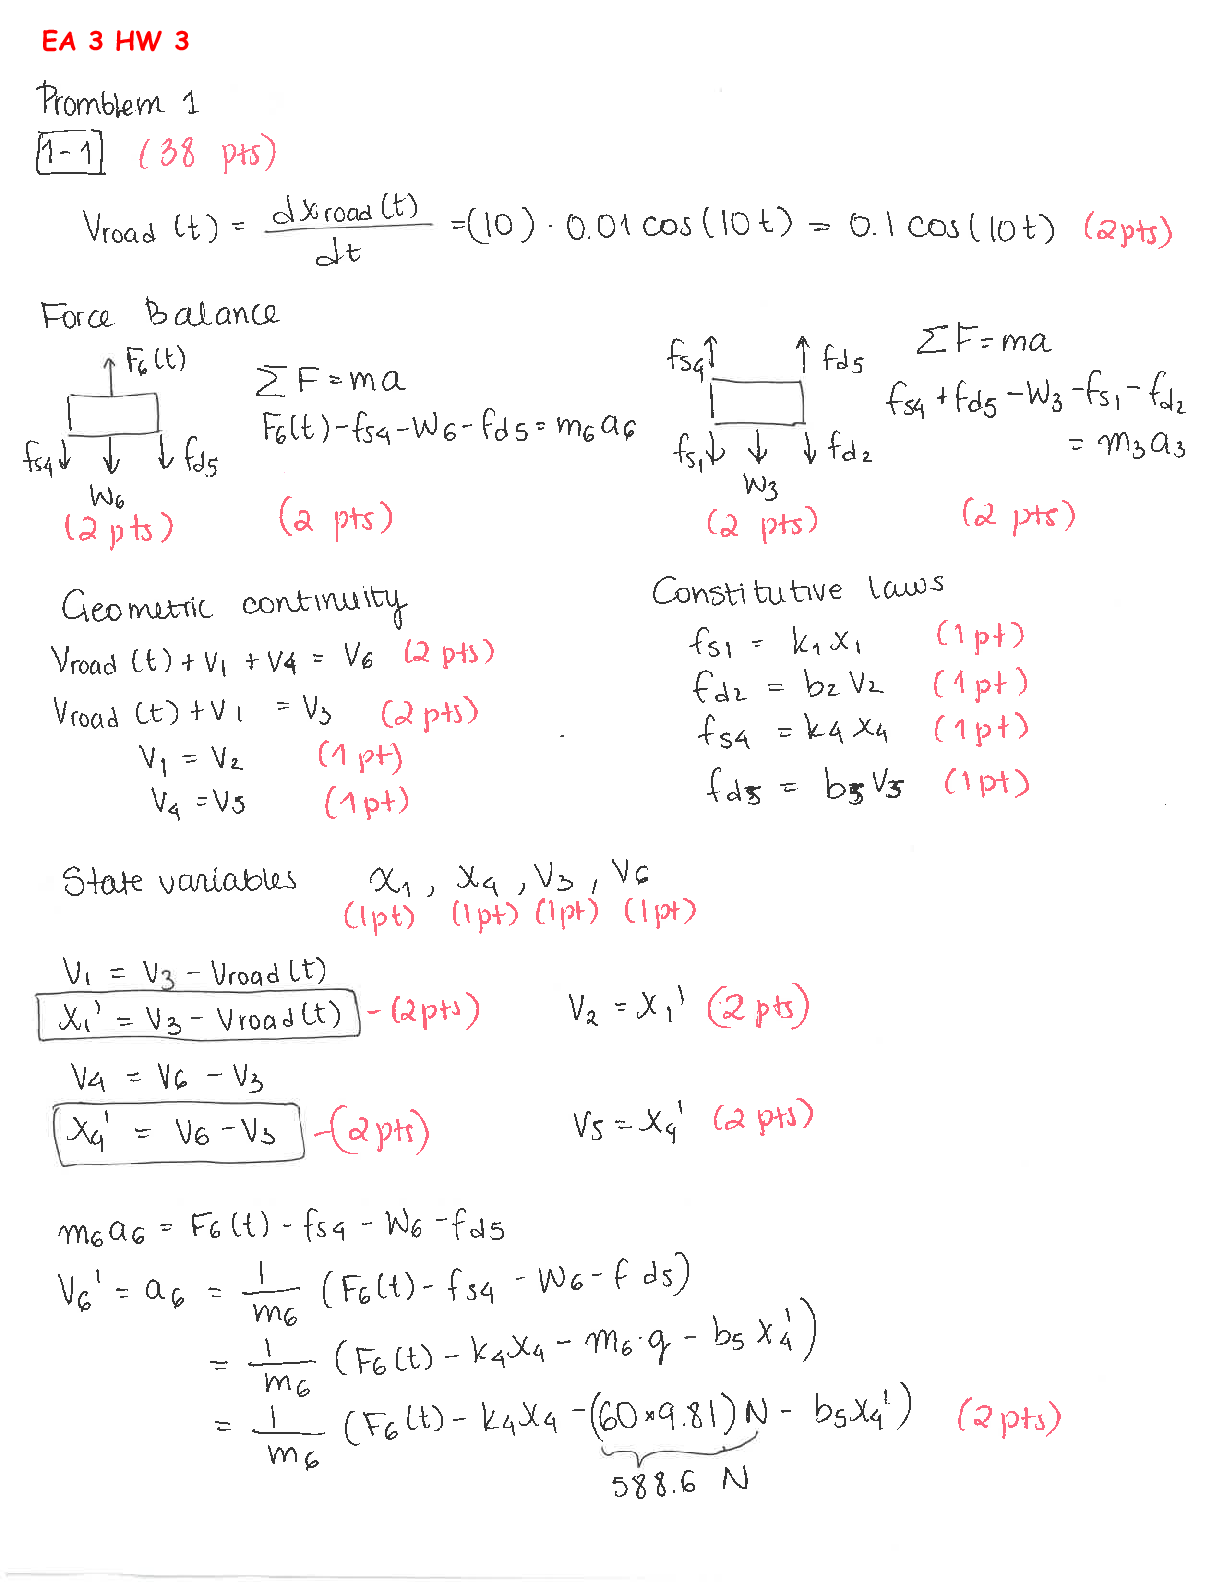 EA 3 HW 3
Promblem 1
1-1 (38 pts)
Vroad (t) = dxroad(t)/dt = (10) · 0.01 cos(10t) = 0.1 cos(10t) (2pts)
Force Balance
F6(t)
ΣF = ma
F6(t) - fs4 - W6 - fd5 = m6a6
fs4 fd5
W6
(2 pts) (2 pts)
fs4 fd5
ΣF = ma
fs4 + fd5 - W3 - fs1 - fd2
= m3a3
fs1 fd2
W3
(2 pts) (2 pts)
Geometric continuity
Vroad (t) + V1 + V4 = V6 (2 pts)
Vroad (t) + V1 = V3 (2 pts)
V1 = V2 (1 pt)
V4 = V5 (1 pt)
Constitutive laws
fs1 = k1 x1 (1 pt)
fd2 = b2 V2 (1 pt)
fs4 = k4 x4 (1 pt)
fd5 = b5 V5 (1 pt)
State variables x1, x4, V3, V6
(1pt) (1pt) (1pt) (1pt)
V1 = V3 - Vroad(t)
x1' = V3 - Vroad(t) - (2pts) V2 = x1' (2 pts)
V4 = V6 - V3
x4' = V6 - V3 - (2 pts) V5 = x4' (2 pts)
m6a6 = F6(t) - fs4 - W6 - fd5
V6' = a6 = 1/m6 (F6(t) - fs4 - W6 - fd5)
= 1/m6 (F6(t) - k4x4 - m6·g - b5 x4')
= 1/m6 (F6(t) - k4x4 - (60*9.81)N - b5x4') (2 pts)
588.6 N